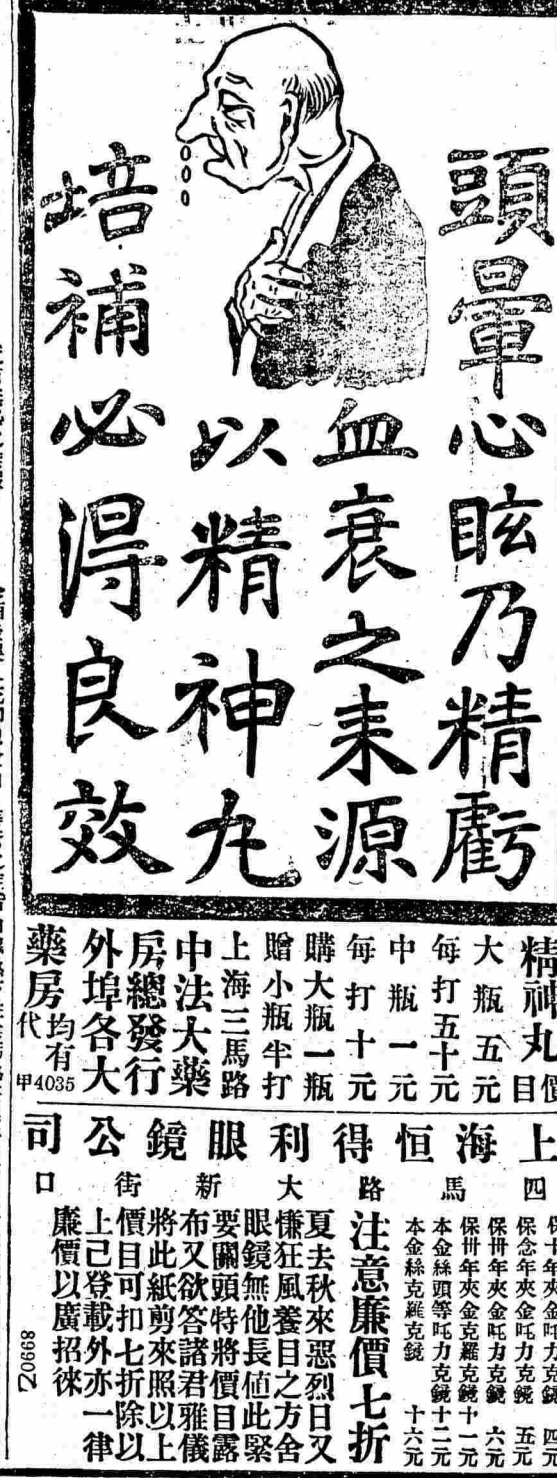 頭暈心眩乃精虧
血衰之来源
以精神丸
培補必得良效
精神丸價目
大瓶五元
每打五十元
中瓶一元
每打十元
購大瓶一瓶
贈小瓶半打
上海三馬路
中法大藥
房總發行
外埠各大
藥房均有代
甲4035
上海恒得利眼鏡公司
四馬路大新街口
保十年夾金吒力克鏡 四元
保念年夾金吒力克鏡 五元
保卅年夾金吒力克鏡 六元
保卅年夾金克羅克鏡十一元
本金絲頭等吒力克鏡十二元
本金絲克羅克鏡 十六元
注意廉價七折
夏去秋來惡烈日又
慊狂風養目之方舍
眼鏡無他長値此緊
要關頭特將價目露
布又欲答諸君雅儀
將此紙剪來照以上
價目可扣七折除以
上已登載外亦一律
廉價以廣招徠
Z0998